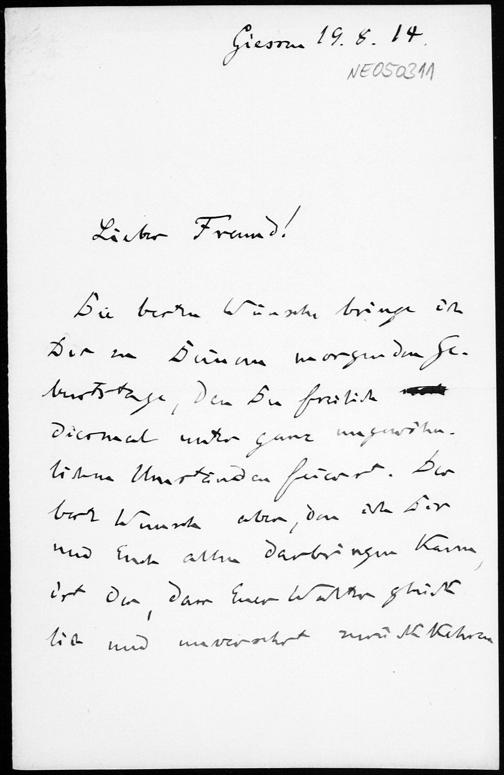 Giessen 19. 8. 14.
NE050311
Lieber Freund!
Die besten Wünsche bringe ich
Dir zu Deinem morgenden Ge-
burtstage, den Du freilich
diesmal unter ganz ungewöhn-
lichen Umständen feierst. Der
beste Wunsch aber, den ich Dir
und Euch allen darbringen kann,
ist der, dass Euer Walter glück
lich und unversehrt zurückkehren